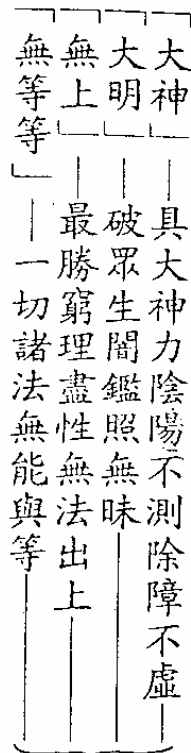 「大神」——具大神力陰陽不測除障不虛
「大明」——破眾生闇鑑照無昧
「無上」——最勝窮理盡性無法出上
「無等等」——一切諸法無能與等